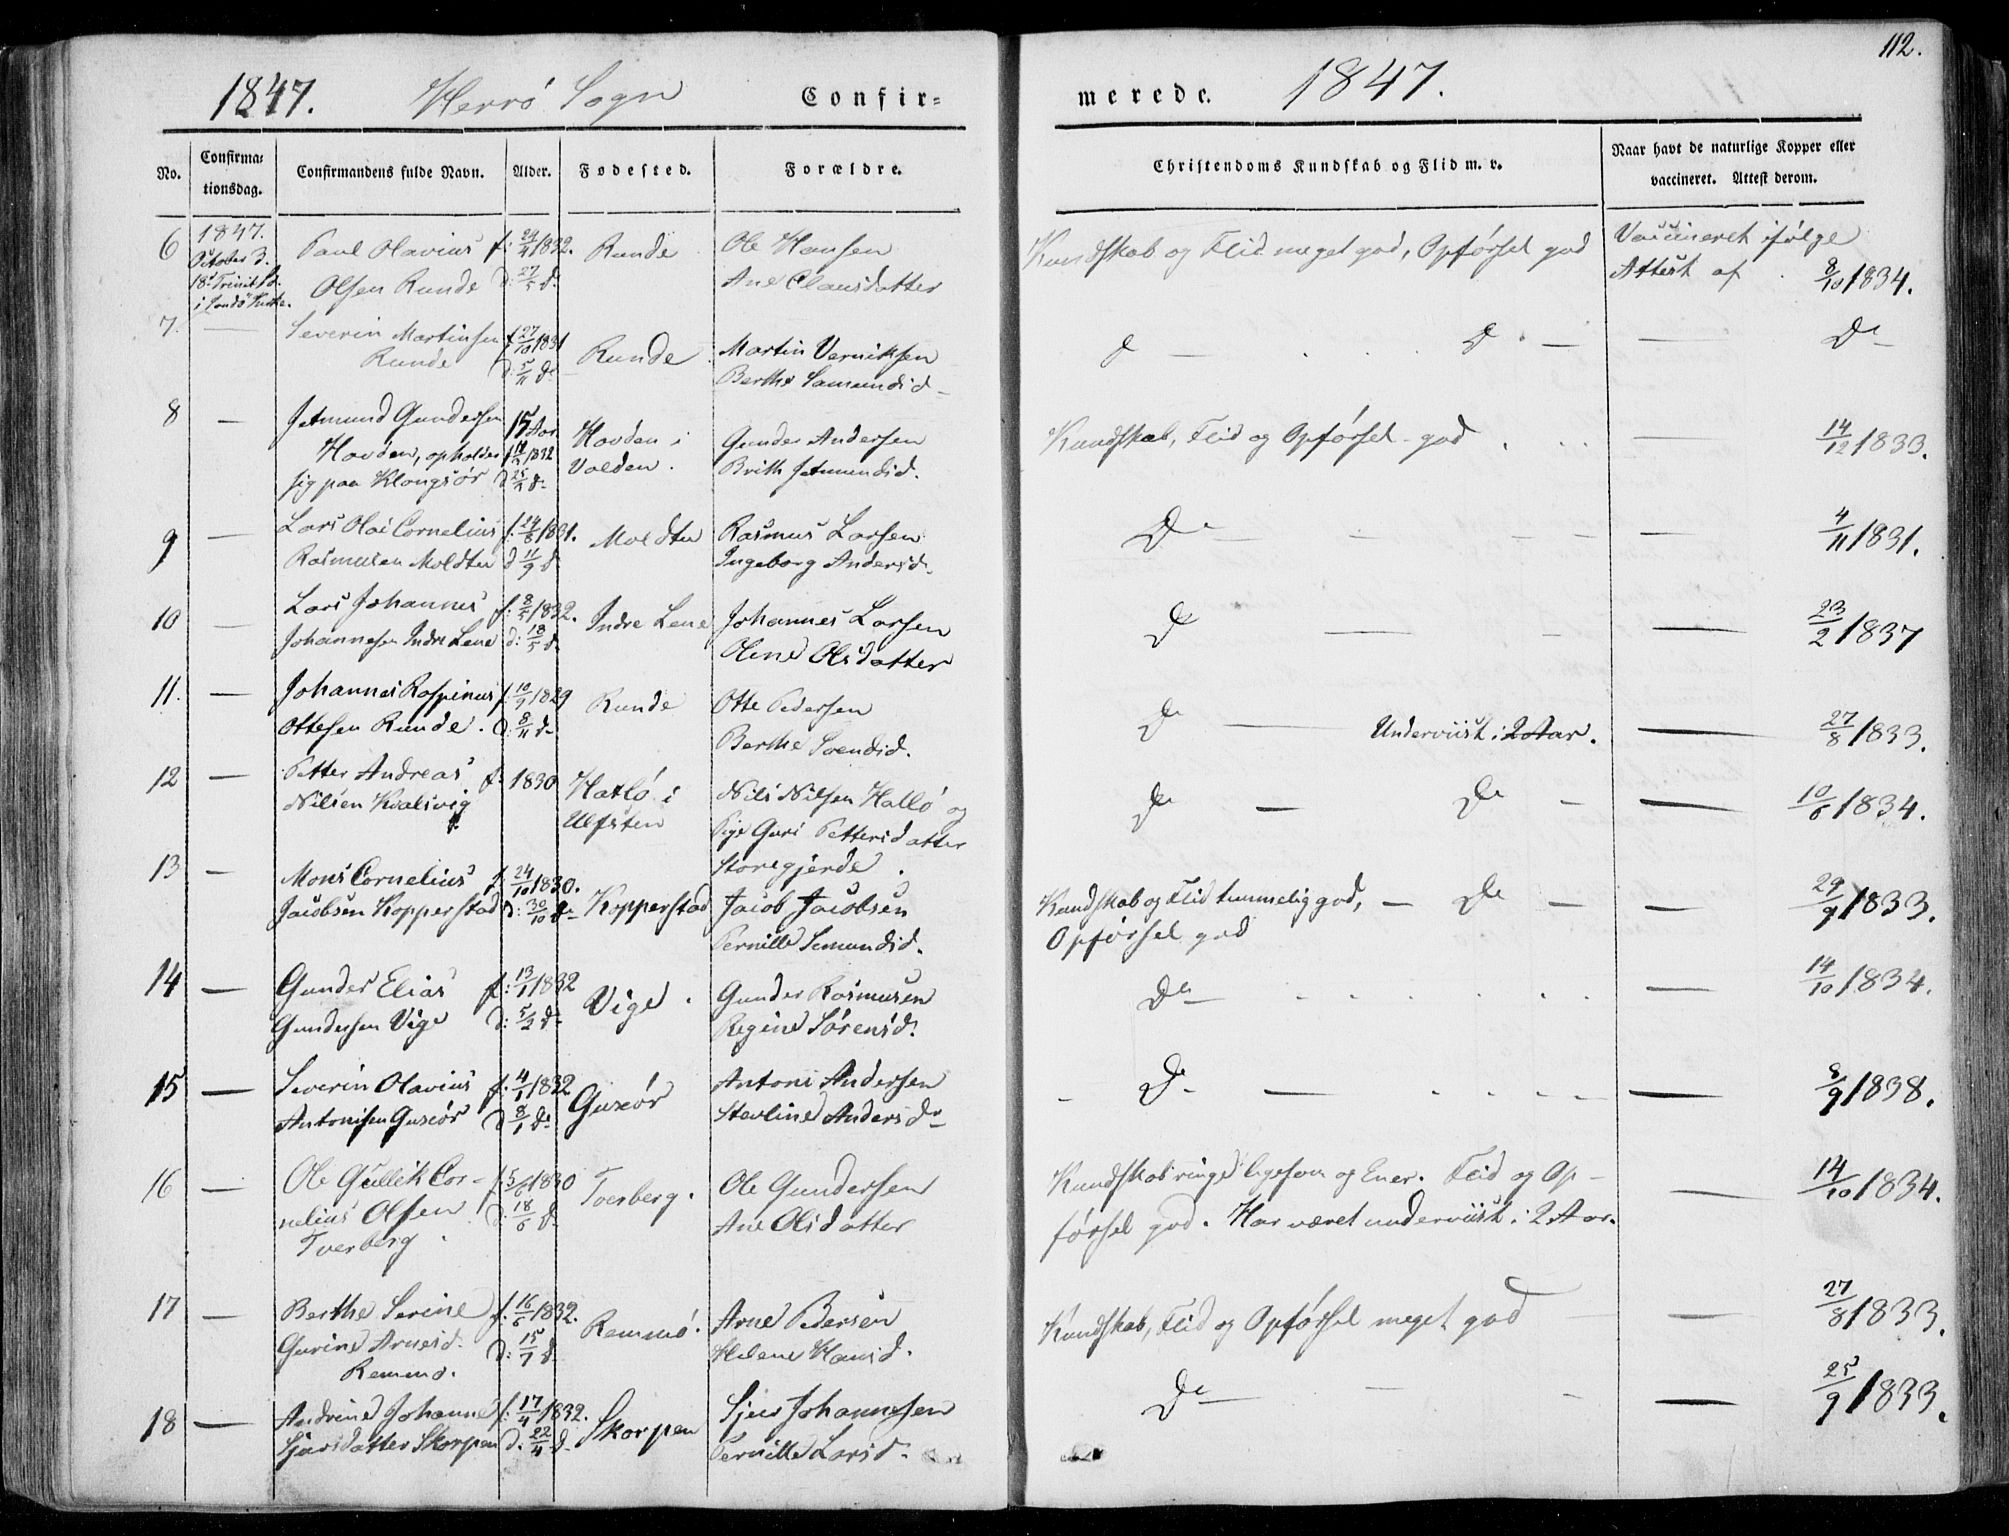 112.
1847. Herrö Sogn Confir= merede. 1847.
No. Confirma= tionsdag. Confirmandens fulde Navn. Alder. Fødested. Forældre. Christendoms Kundskab og Flid m. v. Naar havt de naturlige Kopper eller vaccineret. Attest derom.
6 1847. October 3. 18 Trinit S. i Sandö Kirke. Paul Olavius f: 24/4 1832. Runde Ole Hansen Kundskab og Flid meget god, Opførsel god Vaccineret ifølge
Olsen Runde d: 27/5 do Ane Clausdatter Attest af 8/10 1834.
7. — Severin Martinsen f 27/10 1831 Runde Martin Verniksen do — do — — Do
Runde d: 5/11 do Berthe Samundsd
8 — Jetmund Gundersen 15 Aar Hovden i Gunder Andersen Kundskab, Flid og Opførsel god — 14/12 1833.
Hovden, opholder f 1832 Volden. Brith Jetmundsd.
sig paa Klongsör d 25/ do
9 — Lars Olai Cornelius f: 24/8 1831. Moldtu Rasmus Larsen Do — — 4/11 1831.
Rasmusen Moldtu d 11/9 do Ingeborg Andersd.
10 — Lars Johannes f: 8/5 1832. Indre Lene Johannes Larsen Do — — 23/2 1837
Johannesen Indre Lene d: 18/5 do Olene Olsdatter
11. — Johannes Rospinus f 10/9 1829 Runde Otte Pedersen Do — Underviist i 2 Aar. — 27/8 1833.
Ottesen Runde. d. 8/11 do Berthe Svendsd.
12 — Petter Andreas f. 1830 Hatlö i Nils Nilsen Hatlö og Do — Do — — 10/6 1834.
Nilsen Kvalsvig Ulfsten Pige Guri Pettersdatter
Storegjerde.
13 — Mons Cornelius f. 24/10 1830. Kopperstad Jacob Jacobsen Kundskab og Flid temmelig god, — Do — — 29/9 1833.
Jacobsen Kopperstad d: 30/10 do Pernille Semundsd. Opførsel god
14 — Gunder Elias f: 13/1 1832 Vige. Gunder Rasmusen Do — — 14/10 1834.
Gundersen Vige d: 5/2 do Regine Sörensd.
15 — Severin Olavius f. 4/1 1832 Guseör Antoni Andersen Do — — 8/9 1838.
Antonisen Guseör d 8/1 do Stevline Andersdr
16 — Ole Gullik Cor- f 5/6 1830 Tverberg. Ole Gundersen Kundskab ringe ligesom og Ener. Flid og Op- — 14/10 1834.
nelius Olsen d: 18/6 do Ane Olsdatter førsel god. Har været underviist i 2 Aar.
Tverberg
17 — Berthe Serine f. 16/6 1832. Remmö. Arne Pedersen Kundskab, Flid og Opførsel meget god — 27/8 1833.
Gurine Arnesd. d: 15/7 do Helene Hansd.
Remmö.
18 — Andrine Johanne f: 17/4 1832. Skorpen Sjur Johannesen Do — — 25/9 1833.
Sjursdatter Skorpen d. 22/4 do Pernille Larsd.